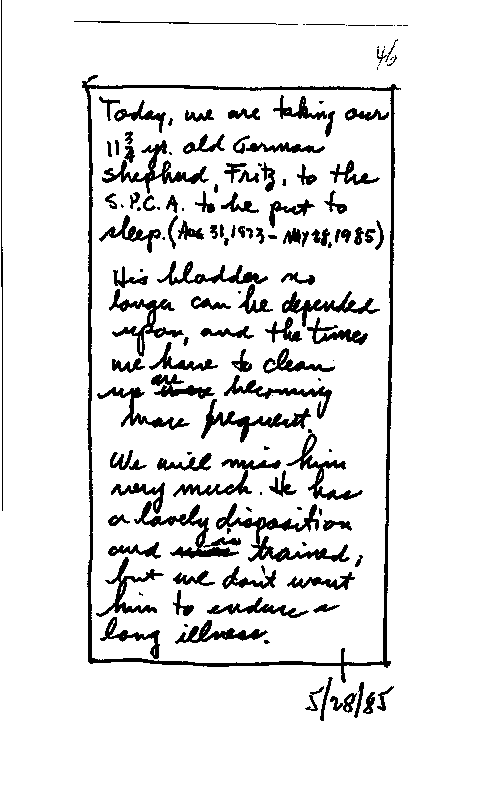 46
Today, we are taking our
11 3/4 yr. old German
shepherd, Fritz, to the
S.P.C.A. to be put to
sleep. (Aug 31, 1973 - May 28, 1985)
His bladder no
longer can be depended
upon, and the times
we have to clean
up are becoming
more frequent.
We will miss him
very much. He has
a lovely disposition
and is trained,
but we don't want
him to endure a
long illness.
5/28/85